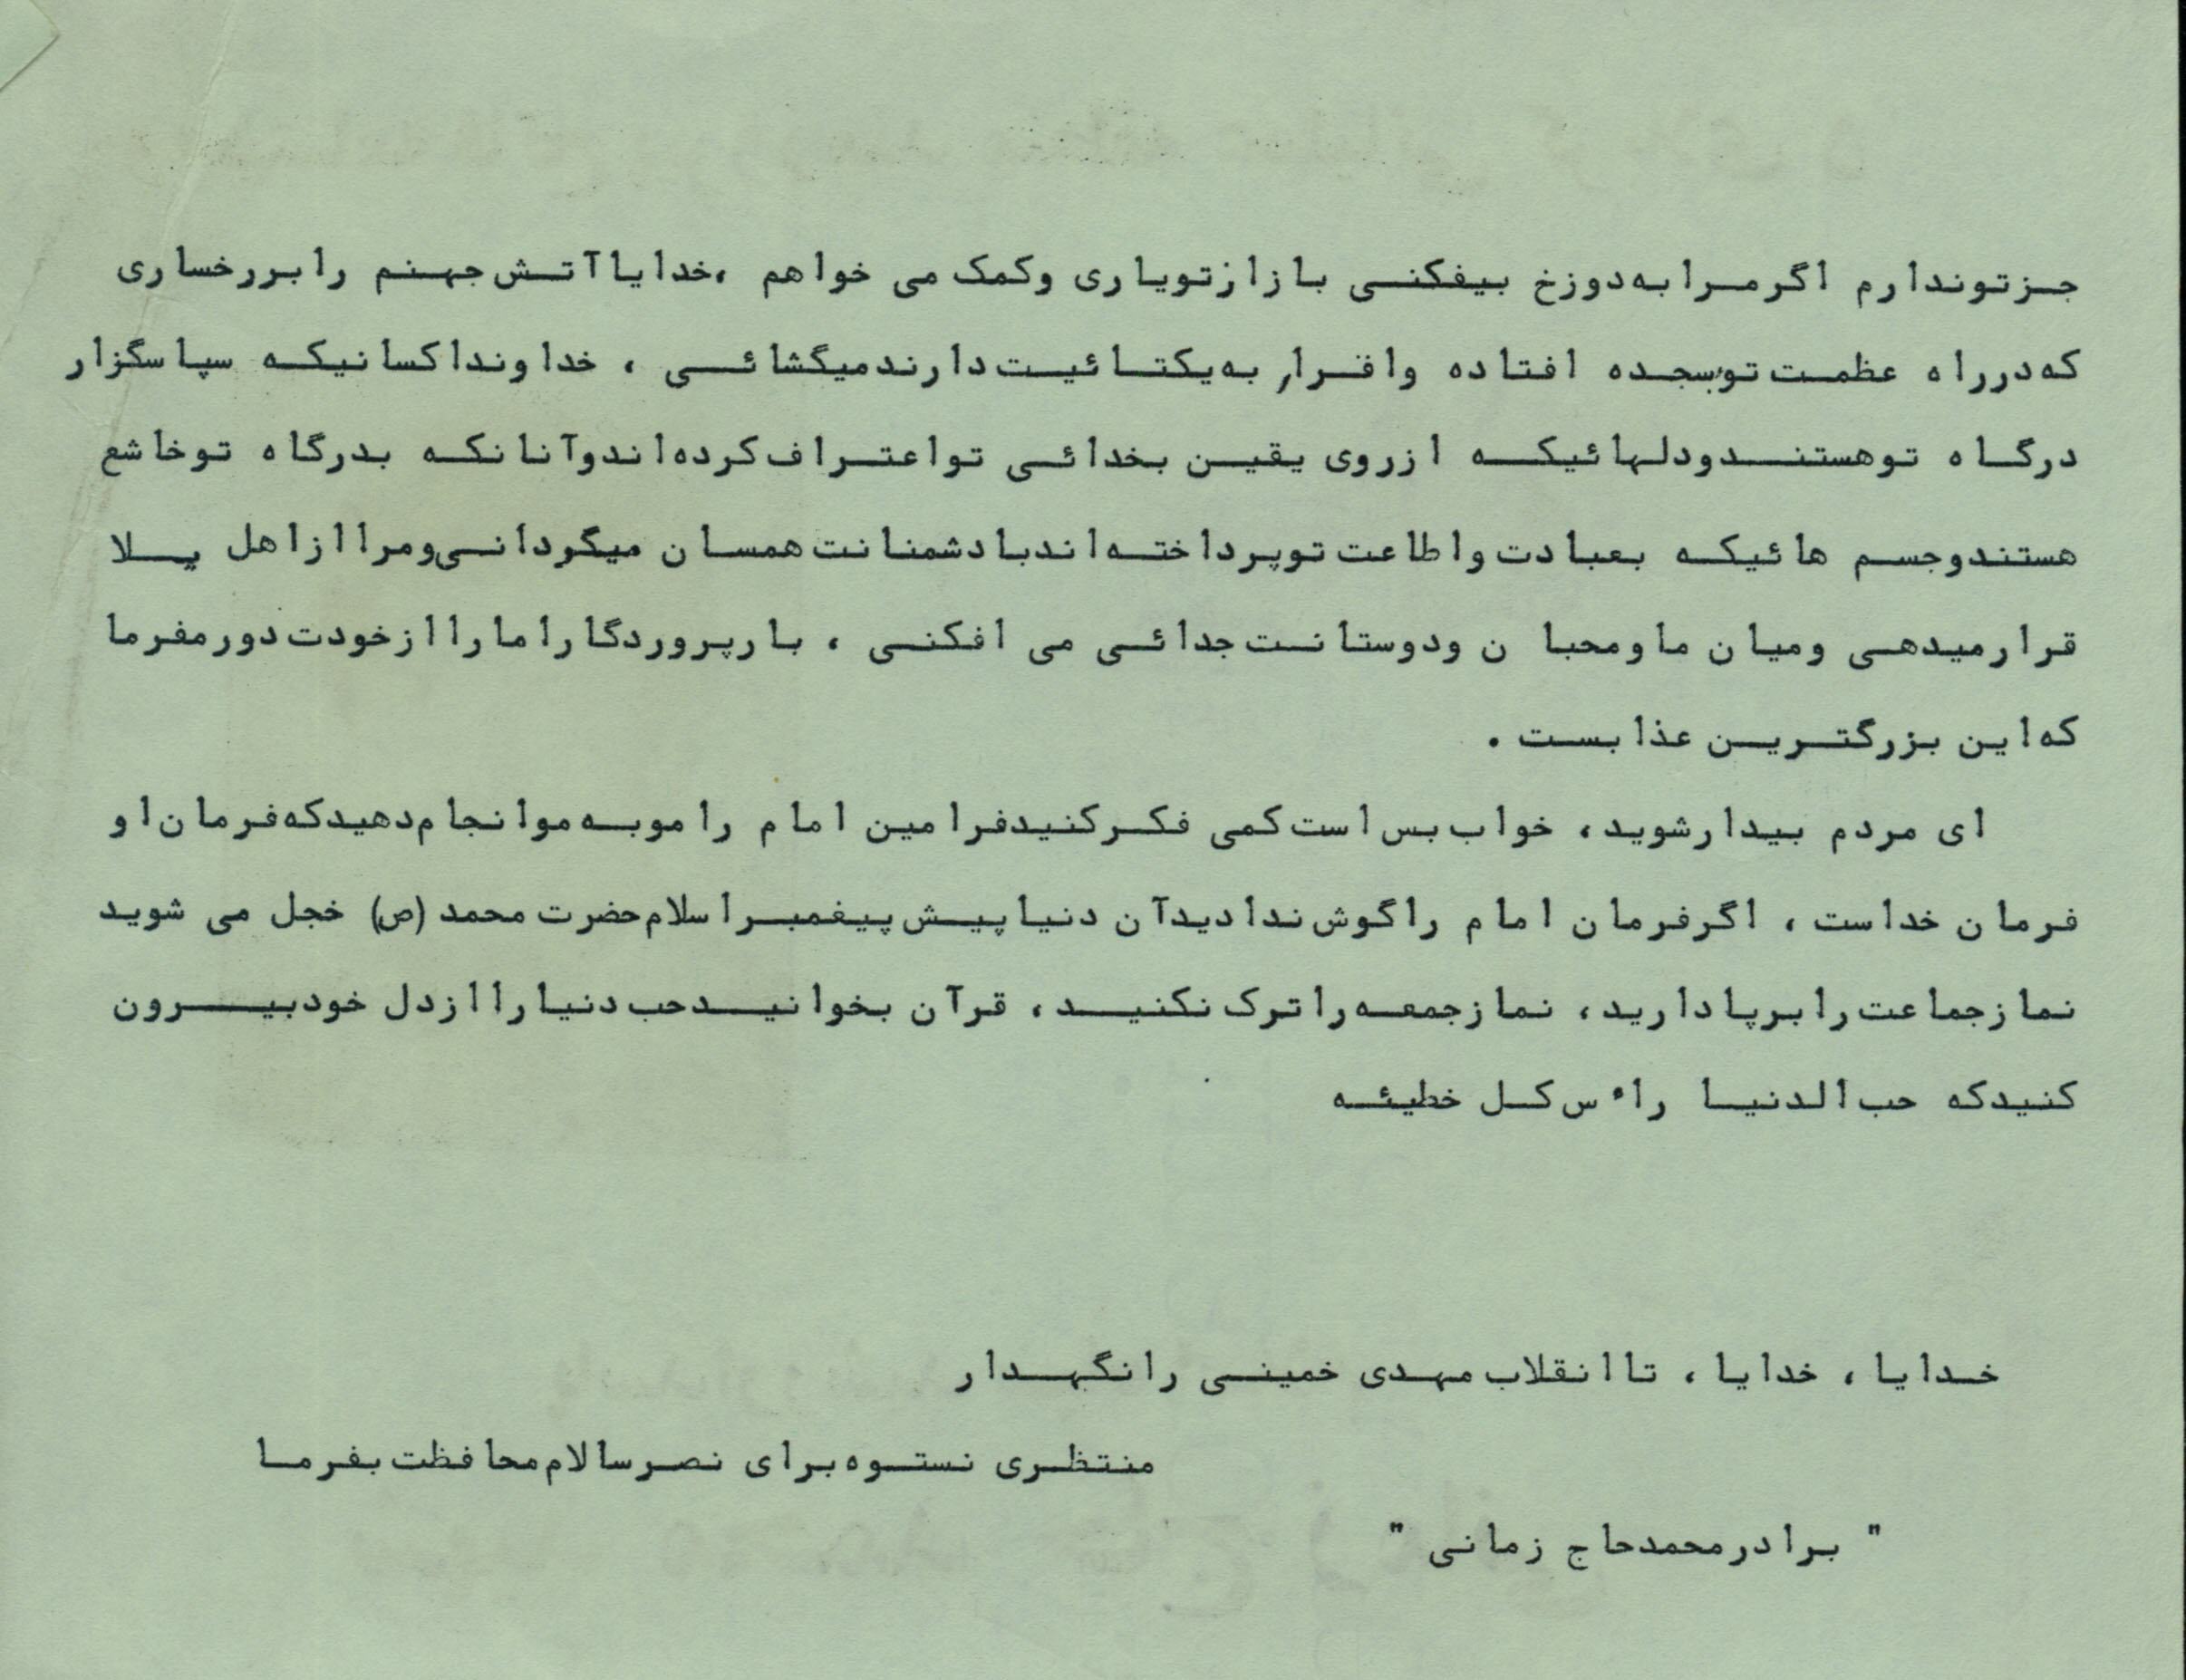 جز تو ندارم اگر مرا به دوزخ بیفکنی باز از تو یاری و کمک می خواهم ،خدایا آتش جهنم را بر رخساری
که در راه عظمت تو بسجده افتاده و اقرار به یکتائیت دارند میگشائی ، خداوندا کسانیکه سپاسگزار
درگاه تو هستند و دلهائیکه از روی یقین بخدائی تو اعتراف کرده اند و آنانکه بدرگاه تو خاشع
هستند و جسم هائیکه بعبادت و اطاعت تو پرداخته اند با دشمنانت همسان میگردانی و مرا از اهل بلا
قرار میدهی و میان ما و محبان و دوستانت جدائی می افکنی ، بار پروردگارا ما را از خودت دور مفرما
که این بزرگترین عذابست .
ای مردم بیدار شوید، خواب بس است کمی فکر کنید فرامین امام را مو به مو انجام دهید که فرمان او
فرمان خداست ، اگر فرمان امام را گوش ندادید آن دنیا پیش پیغمبر اسلام حضرت محمد (ص) خجل می شوید
نماز جماعت را برپا دارید، نماز جمعه را ترک نکنید، قرآن بخوانید حب دنیا را از دل خود بیرون
کنید که حب الدنیا راٴس کل خطیئه
خدایا ، خدایا ، تا انقلاب مهدی خمینی را نگهدار
منتظری نستوه برای نصر سالام محافظت بفرما
" برادر محمد حاج زمانی "